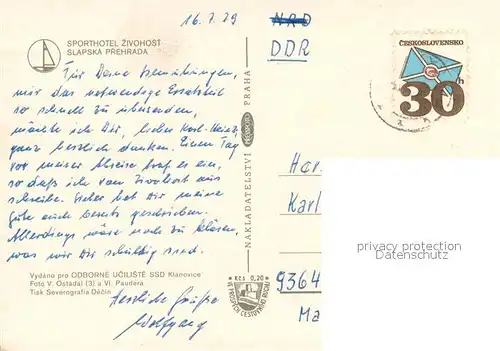 16.7.79
NRD
DDR
SPORTHOTEL ŽIVOHOŠŤ
SLAPSKÁ PŘEHRADA
ČESKOSLOVENSKO
30h
Für Deine Bemühungen,
mir das notwendige Ersatzteil
so schnell zu übersenden,
möchte ich Dir, lieber Karl-Heinz,
ganz herzlich danken. Einen Tag
vor meiner Abreise traf es ein,
so daß ich von Živohost aus
schreibe. Sicher hat Dir meine
Gute auch bereits geschrieben.
Allerdings wäre noch zu klären,
was wir Dir schuldig sind.
Herzliche Grüße
Wolfgang
Vydáno pro ODBORNÉ UČILIŠTĚ SSD Klánovice
Foto V. Ostádal (3) a Vl. Paudera
Tisk Severografia Děčín
NAKLADATELSTVÍ PRESSFOTO PRAHA
Kčs 0,20
VE PROSPĚCH CESTOVNÍHO RUCHU
Karl
9364
Ma
privacy protection
Datenschutz